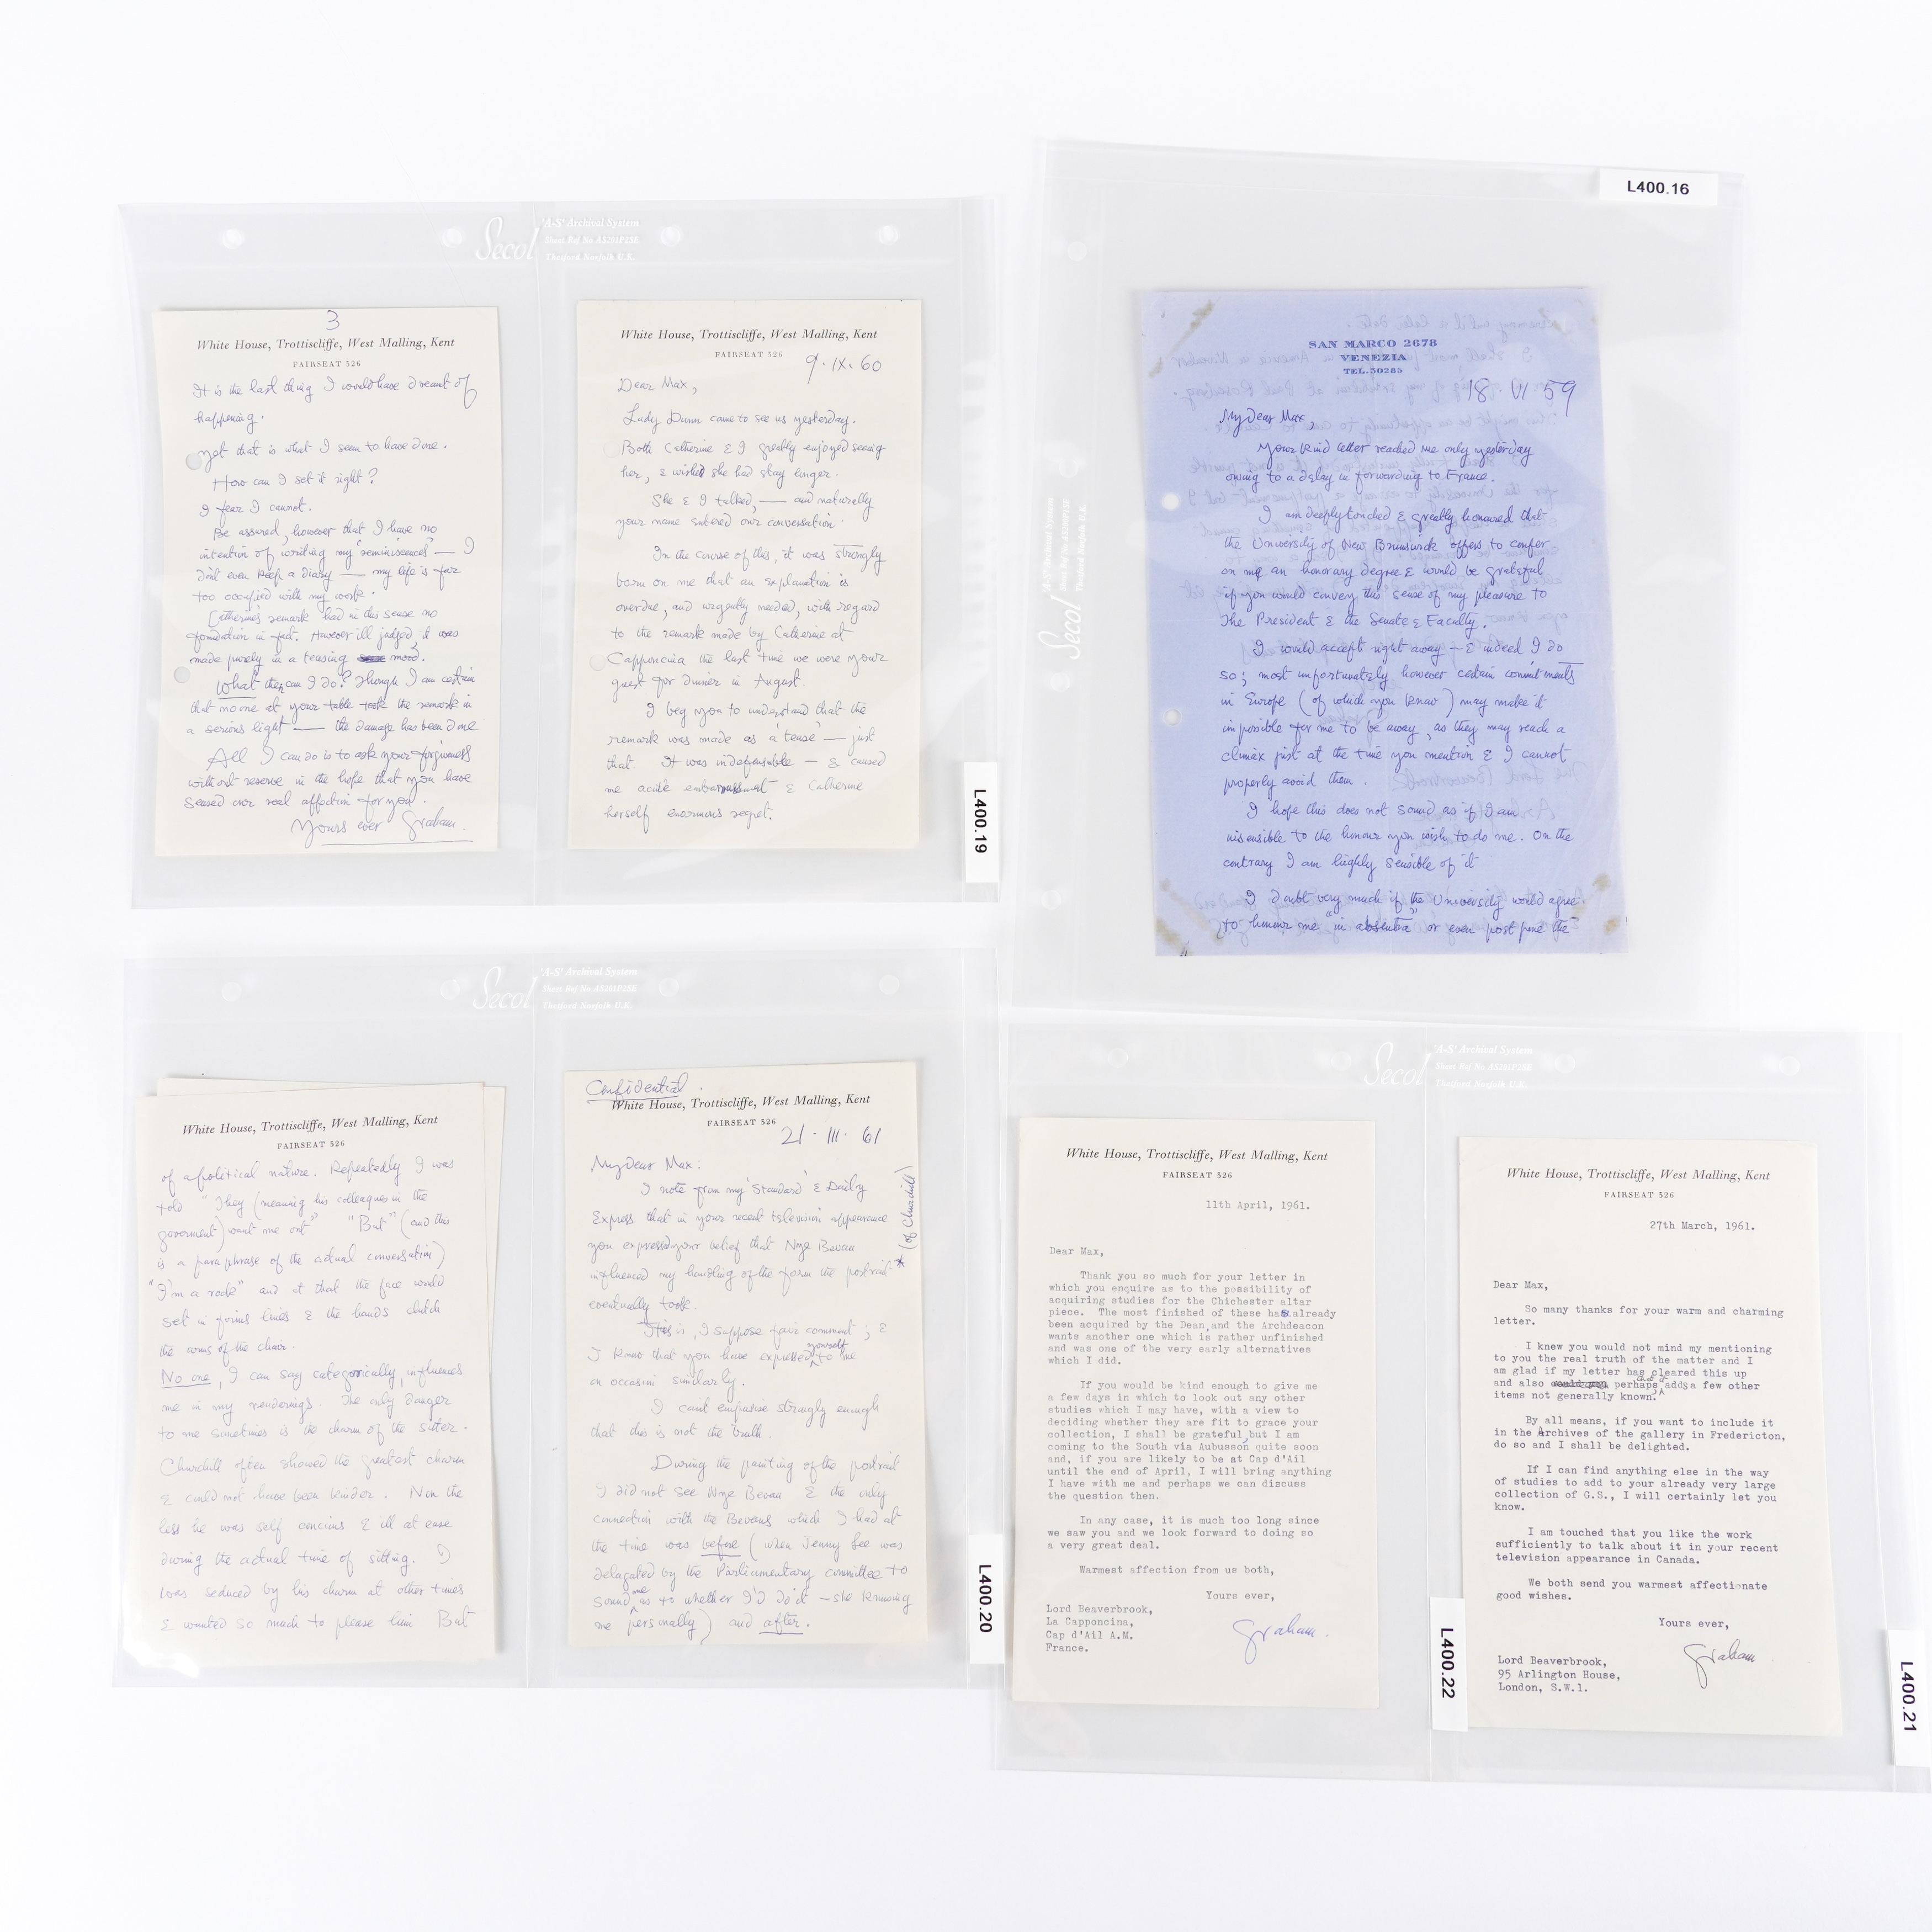 Secol
'A-S' Archival System
Sheet Ref No AS201P25E
Thetford Norfolk U.K.
3
White House, Trottiscliffe, West Malling, Kent
FAIRSEAT 526
It is the last thing I would have dreamt of
happening.
Yet that is what I seem to have done.
How can I set it right?
I fear I cannot.
Be assured, however that I have no
intention of writing my "reminiscences" — I
don't even keep a diary — my life is far
too occupied with my work.
Catherine's remark had in this sense no
foundation in fact. However ill judged, it was
made purely in a teasing mood.
What then can I do? Though I am certain
that no one at your table took the remark in
a serious light — the damage has been done
All I can do is to ask your forgiveness
without reserve in the hope that you have
sensed our real affection for you.
Yours ever Graham.
White House, Trottiscliffe, West Malling, Kent
FAIRSEAT 526
9·IX·60
Dear Max,
Lady Dunn came to see us yesterday.
Both Catherine & I greatly enjoyed seeing
her, & wished she had stay longer.
She & I talked, — and naturally
your name entered our conversation.
In the course of this, it was strongly
born on me that an explanation is
overdue, and urgently needed, with regard
to the remark made by Catherine at
Capponcina the last time we were your
guest for dinner in August.
I beg you to understand that the
remark was made as a 'tease' — just
that. It was indefensible — & caused
me acute embarrassment & Catherine
herself enormous regret.
L400.19
L400.16
Secol
'A-S' Archival System
Sheet Ref No AS201P25E
Thetford Norfolk U.K.
SAN MARCO 2678
VENEZIA
TEL.30285
18·VI·59
My Dear Max,
Your kind letter reached me only yesterday
owing to a delay in forwarding to France.
I am deeply touched & greatly honoured that
the University of New Brunswick offers to confer
on me an honorary degree & would be grateful
if you would convey this sense of my pleasure to
The President & the Senate & Faculty.
I would accept right away — & indeed I do
so; most unfortunately however certain commitments
in Europe (of which you know) may make it
impossible for me to be away, as they may reach a
climax just at the time you mention & I cannot
properly avoid them.
I hope this does not sound as if I am
insensible to the honour you wish to do me. On the
contrary I am highly sensible of it
I doubt very much if the University would agree
to honour me "in absentia" or even postpone the
Secol
'A-S' Archival System
Sheet Ref No AS201P25E
Thetford Norfolk U.K.
White House, Trottiscliffe, West Malling, Kent
FAIRSEAT 526
of a political nature. Repeatedly I was
told "They (meaning his colleagues in the
goverment) want me out" "But" (and this
is a paraphrase of the actual conversation)
"I'm a rock" and at that the face would
set in grim lines & the hands clutch
the arms of the chair.
No one, I can say categorically, influences
me in my renderings. The only danger
to me sometimes is the charm of the sitter.
Churchill often showed the greatest charm
& could not have been kinder. Non the
less he was self concius & ill at ease
during the actual time of sitting. I
was seduced by his charm at other times
& wanted so much to please him But
Confidential.
White House, Trottiscliffe, West Malling, Kent
FAIRSEAT 526
21·III·61
My Dear Max:
I note from my 'Standard' & Daily
Express that in your recent television appearance
you expressed your belief that Nye Bevan
influenced my handling of the form the portrait *
(of Churchill)
eventually took.
This is, I suppose fair comment; &
I know that you have expressed yourself to me
on occasion similarly.
I cant emphasise strongly enough
that this is not the truth.
During the painting of the portrait
I did not see Nye Bevan & the only
connection with the Bevans which I had at
the time was before (when Jenny Lee was
delegated by the Parliamentary committee to
sound me as to whether I'd do it — she knowing
me personally) and after.
L400.20
Secol
'A-S' Archival System
Sheet Ref No AS201P25E
Thetford Norfolk U.K.
White House, Trottiscliffe, West Malling, Kent
FAIRSEAT 526
11th April, 1961.
Dear Max,
Thank you so much for your letter in
which you enquire as to the possibility of
acquiring studies for the Chichester altar
piece. The most finished of these has already
been acquired by the Dean, and the Archdeacon
wants another one which is rather unfinished
and was one of the very early alternatives
which I did.
If you would be kind enough to give me
a few days in which to look out any other
studies which I may have, with a view to
deciding whether they are fit to grace your
collection, I shall be grateful, but I am
coming to the South via Aubusson quite soon
and, if you are likely to be at Cap d'Ail
until the end of April, I will bring anything
I have with me and perhaps we can discuss
the question then.
In any case, it is much too long since
we saw you and we look forward to doing so
a very great deal.
Warmest affection from us both,
Yours ever,
Graham.
Lord Beaverbrook,
La Capponcina,
Cap d'Ail A.M.
France.
L400.22
White House, Trottiscliffe, West Malling, Kent
FAIRSEAT 526
27th March, 1961.
Dear Max,
So many thanks for your warm and charming
letter.
I knew you would not mind my mentioning
to you the real truth of the matter and I
am glad if my letter has cleared this up
and also perhaps adds a few other
items not generally known.
By all means, if you want to include it
in the Archives of the gallery in Fredericton,
do so and I shall be delighted.
If I can find anything else in the way
of studies to add to your already very large
collection of G.S., I will certainly let you
know.
I am touched that you like the work
sufficiently to talk about it in your recent
television appearance in Canada.
We both send you warmest affectionate
good wishes.
Yours ever,
Graham
Lord Beaverbrook,
95 Arlington House,
London, S.W.1.
L400.21